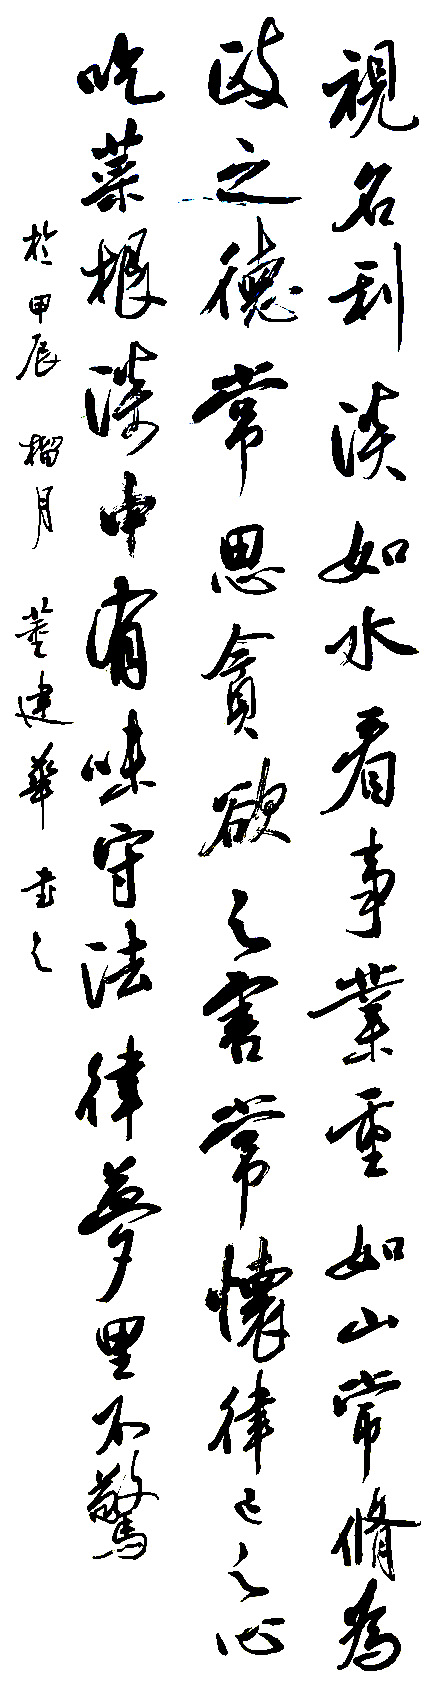 視名利淡如水看事業重如山常脩為
政之德常思貪欲之害常懷律己之心
吃菜根淡中有味守法律夢里不驚
於甲辰榴月董建華書之